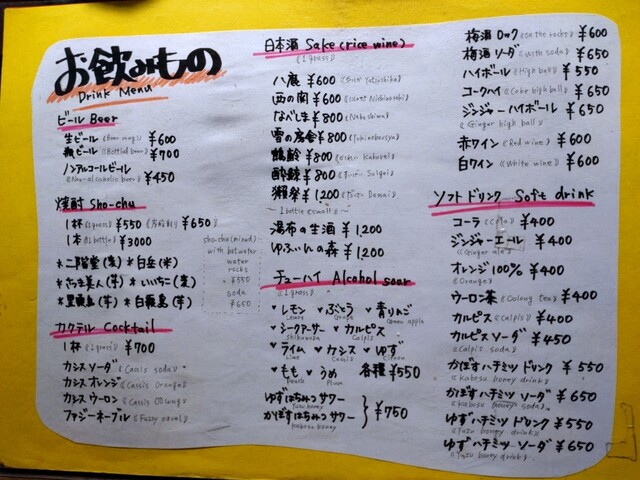 お飲みもの
Drink Menu
ビール Beer
生ビール (Beer mug) ¥600
瓶ビール (Bottled beer) ¥700
ノンアルコールビール
(Non-alcoholic beer) ¥450
焼酎 Sho-chu
1杯 (1grass) ¥550 ¥650
1本 (1bottle) ¥3000
*二階堂(麦) *白岳(米)
*さつま美人(芋) *いいちこ(麦)
*黒霧島(芋) *白霧島(芋)
sho-chu (mixed)
with hot water
water
rocks
¥550
soda
¥650
カクテル Cocktail
1杯 ¥700
カシスソーダ (Cassis soda)
カシスオレンジ (Cassis Orange)
カシスウーロン (Cassis Oolong)
ファジーネーブル (Fuzzy navel)
日本酒 Sake (rice wine)
(1grass)
八鹿 ¥600
西の関 ¥600
なべしま ¥800 (Nabeshima)
雪の房舎 ¥800
鶴齢 ¥800
酔鯨 ¥800
獺祭 ¥1,200
1bottle (small)
湯布の生酒 ¥1,200
ゆふいんの森 ¥1,200
チューハイ Alcohol sour
(1grass)
♥レモン ♥ぶどう ♥青りんご
Green apple
♥シークアーサー ♥カルピス
Shikuwasa Calpis
♥ライム ♥カシス ♥ゆず
Lime Cassis
♥もも ♥うめ 各種 ¥550
ゆずはちみつサワー
Yuzu honey
かぼすはちみつサワー ¥750
Kabosu honey
梅酒 ロック (on the rocks) ¥600
梅酒 ソーダ (with soda) ¥650
ハイボール (High ball) ¥550
コークハイ (Coke high ball) ¥650
ジンジャーハイボール ¥650
(Ginger high ball)
赤ワイン (Red wine) ¥600
白ワイン (White wine) ¥600
ソフトドリンク Soft drink
コーラ (Cola) ¥400
ジンジャーエール ¥400
(Ginger ale)
オレンジ 100% ¥400
(Orange)
ウーロン茶 (Oolong tea) ¥400
カルピス (Calpis) ¥400
カルピスソーダ ¥450
(Calpis soda)
かぼすハチミツ ドリンク ¥550
(Kabosu honey drink)
かぼすハチミツ ソーダ ¥650
(Kabosu honey soda)
ゆずハチミツ ドリンク ¥550
(Yuzu honey drink)
ゆずハチミツ ソーダ ¥650
(Yuzu honey drink)